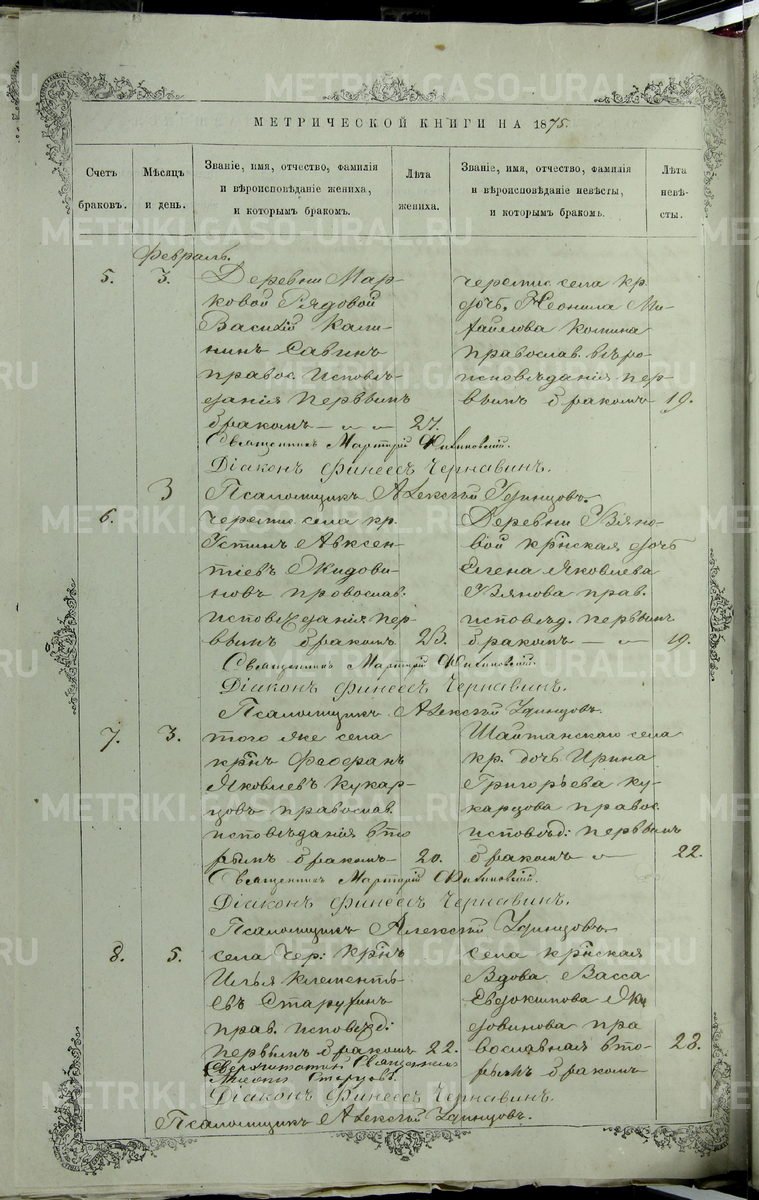 МЕТРИЧЕСКОЙ КНИГИ НА 1875.
Счетъ браковъ.
Мѣсяцъ и день.
Званіе, имя, отчество, фамилія
и вѣроисповѣданіе жениха,
и которымъ бракомъ.
Лѣта жениха.
Званіе, имя, отчество, фамилія
и вѣроисповѣданіе невѣсты,
и которымъ бракомъ.
Лѣта невѣ-
сты.
Февраль.
5.
3.
Деревни Мар-
ковой Рядовой
Василій Кали-
нинъ Савинъ
правос. исповѣ-
данія первымъ
бракомъ
27.
черемис. села кр.
дочь, Неонила Ми-
хайлова
православ. вѣро-
исповѣданія пер-
вымъ бракомъ
19.
Священникъ Мартирій
Діаконъ Финеесъ Чернавинъ.
Псаломщикъ Алексѣй Удинцовъ.
6.
3
черемис. села кр.
Устинъ Авксен-
тіевъ Якидови-
новъ провослав.
исповѣданія пер-
вымъ бракомъ
23.
Деревни Узяно-
вой крн҃ская дочь
Елена Яковлева
Узянова прав.
исповѣд. первымъ
бракомъ
19.
Священникъ Мартирій
Діаконъ Финеесъ Чернавинъ.
Псаломщикъ Алексѣй Удинцовъ.
7.
3.
того же села
крн҃ъ Феофанъ
Яковлевъ Кукар-
цовъ православ.
исповѣданія вто
рымъ бракомъ
20.
Шайтанскаго села
кр. дочь Ирина
Григорьева Ку-
карцова правос.
исповѣд: первымъ
бракомъ
22.
Священникъ Мартирій
Діаконъ Финеесъ Чернавинъ.
Псаломщикъ Алексѣй Удинцовъ.
8.
5.
села Чер: крн҃ъ
Илья Клементь
евъ Старухинъ
прав. исповѣд:
первымъ бракомъ
22.
села крн҃ская
Вдова Васса
Евдокимова Яки
довинова пра
вославная вто-
рымъ бракомъ
23.
Священникъ
Старцовъ.
Діаконъ Финеесъ Чернавинъ.
Псаломщикъ Алексѣй Удинцовъ.
METRIKI.GASO-URAL.RU